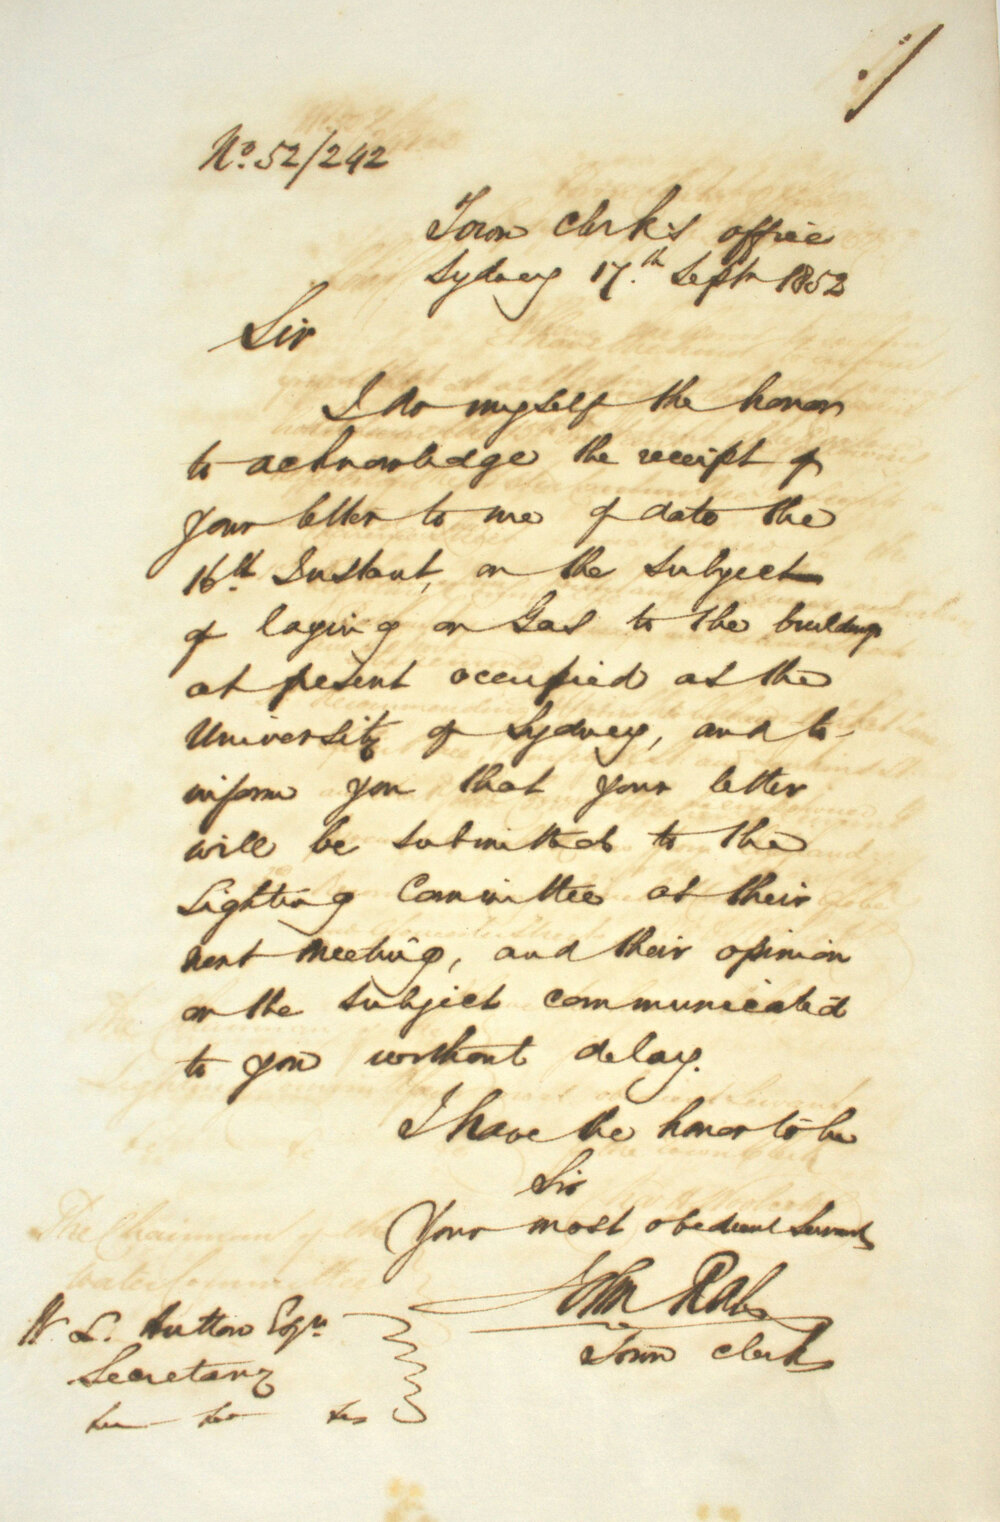 No. 52/242
Town Clerk's office
Sydney 17.th Septr 1852
Sir
I do myself the honor
to acknowledge the receipt of
your letter to me of date the
16th Instant, on the subject
of laying on Gas to the buildings
at present occupied as the
University of Sydney, and to
inform you that your letter
will be submitted to the
Lighting Committee at their
next meeting, and their opinion
on the subject communicated
to you without delay.
I have the honor to be
Sir
Your most obedient servant
John Rae
Town Clerk
W. L. Hutton Esqre
Secretary